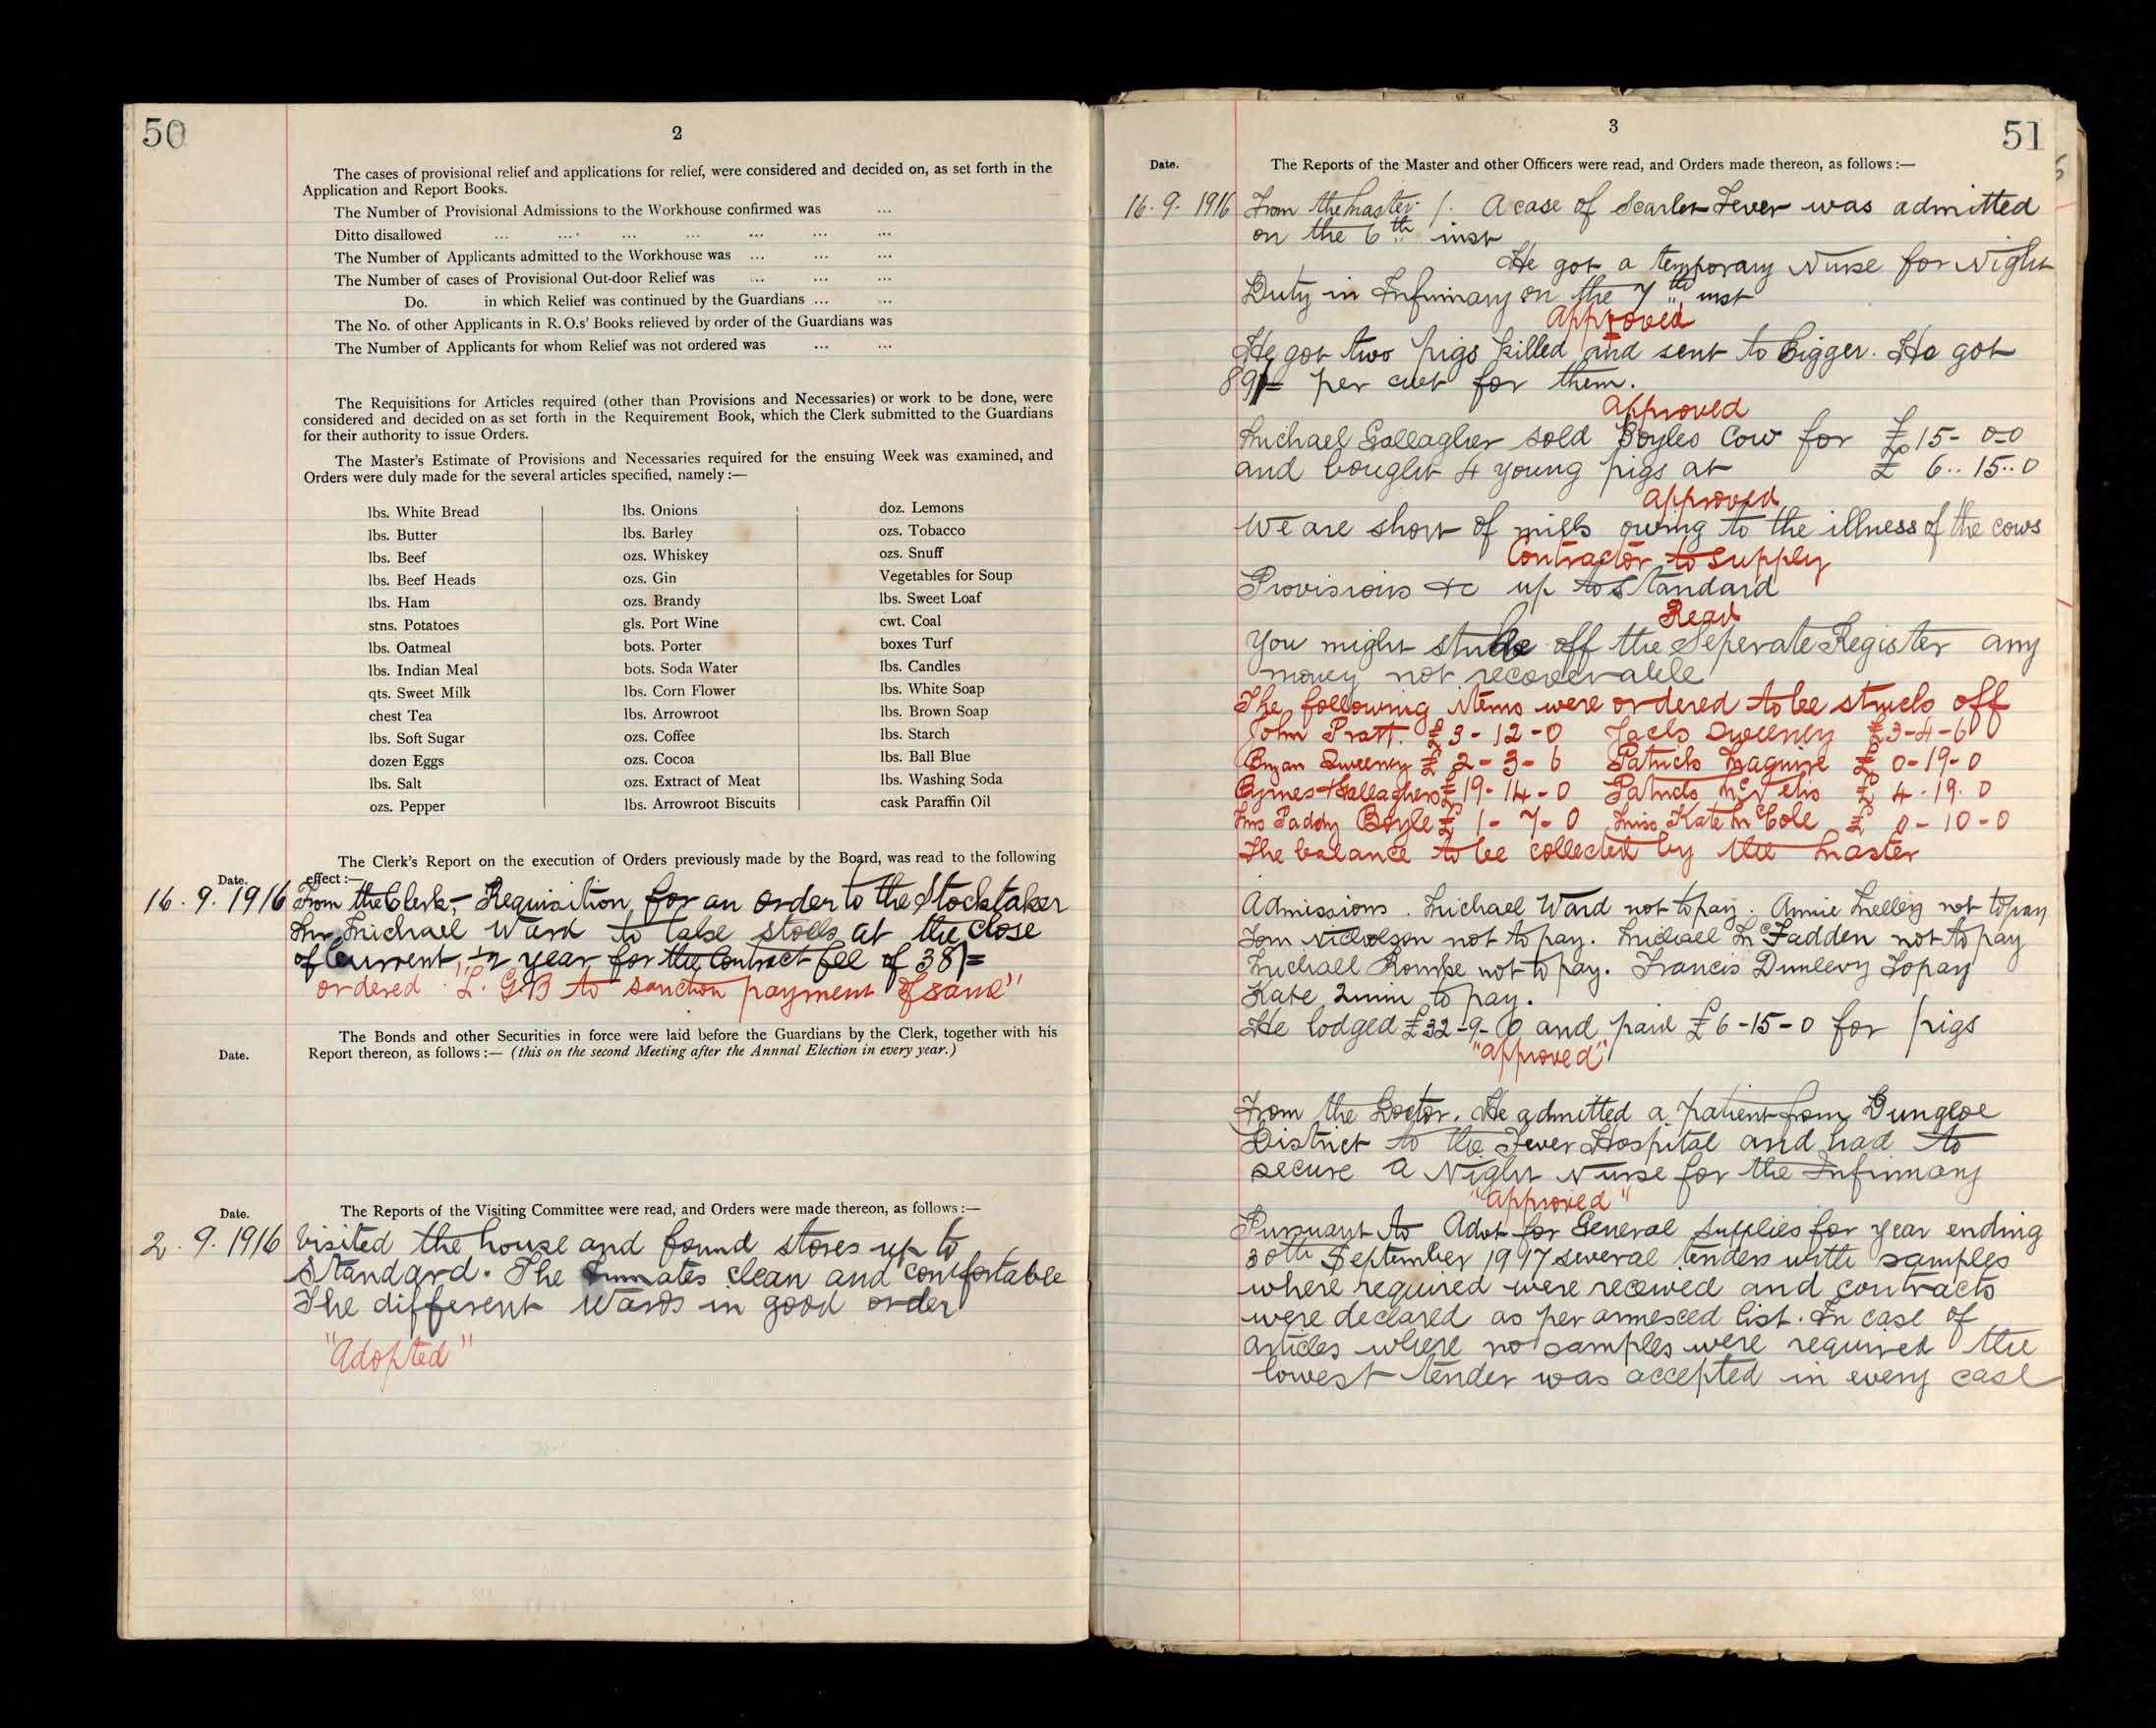 50
2
The cases of provisional relief and applications for relief, were considered and decided on, as set forth in the
Application and Report Books.
The Number of Provisional Admissions to the Workhouse confirmed was ...
Ditto disallowed ... ... ... ... ... ... ...
The Number of Applicants admitted to the Workhouse was ... ... ...
The Number of cases of Provisional Out-door Relief was ... ... ...
Do. in which Relief was continued by the Guardians ... ...
The No. of other Applicants in R.O.s' Books relieved by order of the Guardians was
The Number of Applicants for whom Relief was not ordered was ... ...
The Requisitions for Articles required (other than Provisions and Necessaries) or work to be done, were
considered and decided on as set forth in the Requirement Book, which the Clerk submitted to the Guardians
for their authority to issue Orders.
The Master's Estimate of Provisions and Necessaries required for the ensuing Week was examined, and
Orders were duly made for the several articles specified, namely :—
lbs. White Bread
lbs. Butter
lbs. Beef
lbs. Beef Heads
lbs. Ham
stns. Potatoes
lbs. Oatmeal
lbs. Indian Meal
qts. Sweet Milk
chest Tea
lbs. Soft Sugar
dozen Eggs
lbs. Salt
ozs. Pepper
lbs. Onions
lbs. Barley
ozs. Whiskey
ozs. Gin
ozs. Brandy
gls. Port Wine
bots. Porter
bots. Soda Water
lbs. Corn Flower
lbs. Arrowroot
ozs. Coffee
ozs. Cocoa
ozs. Extract of Meat
lbs. Arrowroot Biscuits
doz. Lemons
ozs. Tobacco
ozs. Snuff
Vegetables for Soup
lbs. Sweet Loaf
cwt. Coal
boxes Turf
lbs. Candles
lbs. White Soap
lbs. Brown Soap
lbs. Starch
lbs. Ball Blue
lbs. Washing Soda
cask Paraffin Oil
The Clerk's Report on the execution of Orders previously made by the Board, was read to the following
Date. effect :—
16.9.1916 From the Clerk,- Requisition for an order to the Stocktaker
Mr Michael Ward to take stock at the close
of Current ½ year for the Contract fee of 38/=
ordered "L.G.B to sanction payment of same"
The Bonds and other Securities in force were laid before the Guardians by the Clerk, together with his
Date. Report thereon, as follows :— (this on the second Meeting after the Annnal Election in every year.)
Date. The Reports of the Visiting Committee were read, and Orders were made thereon, as follows :—
2.9.1916 Visited the house and found stores up to
Standard. The Inmates clean and comfortable
The different Wards in good order
"Adopted"
51
3
Date. The Reports of the Master and other Officers were read, and Orders made thereon, as follows :—
16.9.1916 From the Master /. A case of Scarlet Fever was admitted
on the 6th inst
He got a temporary Nurse for Night
Duty in Infirmary on the 7th inst
Approved
He got two pigs killed and sent to Bigger. He got
89/= per cwt for them.
Approved
Michael Gallagher sold Boyles Cow for £15-0-0
and bought 4 young pigs at £ 6..15..0
Approved
We are short of milk owing to the illness of the cows
Contractor to supply
Provisions &c up to Standard
Read
You might strike off the Seperate Register any
money not recoverable
The following items were ordered to be struck off
John Pratt. £3-12-0 Jack Sweeney £3-4-6
Bryan Sweeney £ 2-3-6 Patrick Maguire £ 0-19-0
Byrnes & Gallaghers £19-14-0 Patrick £ 4.19.0
Mrs Paddy Boyle £ 1-7-0 Miss Kate McCole £ 0-10-0
The balance to be collected by the Master
Admissions. Michael Ward not to pay. Annie not to pay
Tom Nicholson not to pay. Michael McFadden not to pay
Michael not to pay. Francis Dunleavy To pay
Kate to pay.
He lodged £32-9-0 and paid £6-15-0 for pigs
"approved"
From the Doctor. He admitted a patient from Dungloe
District to the Fever Hospital and had to
secure a Night Nurse for the Infirmary
"approved"
Pursuant to Advt for General Supplies for year ending
30th September 1917 several tenders with samples
where required were received and contracts
were declared as per annexed list. In case of
articles where no samples were required the
lowest tender was accepted in every case